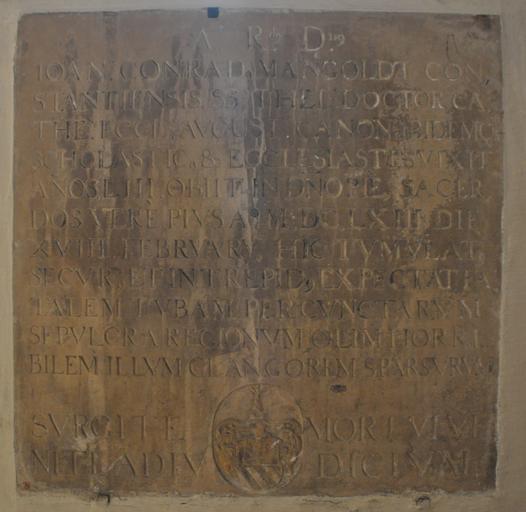 A. R.dus D.nus
IOAN. CONRAD. MANGOLDT CON,
STANTIENSIS SS. THEL. DOCTOR CA,
THE. ECCL. AUGUST. CANON. IBIDEMQ
SCHOLASTIC9 & ECCLESIASTES VIXIT
AÑOS LIII OBIIT IN DNO PIE, SACER
DOS VERE PIVS AO. M. DC. LXIII. DIE
XVIII. FEBRVARY. HIC TVMVLAT,
SECVR9 ET INTREPID9 EXPECTAT FA
TALEM TVBAM PER CVNCTARVM
SEPVLCRA REGIONVM OLIM HORRI
BILEM ILLVM CLANGOREM SPARSVRVM
SVRGITE MORTVI VE
NITE AD IV DICIVM.